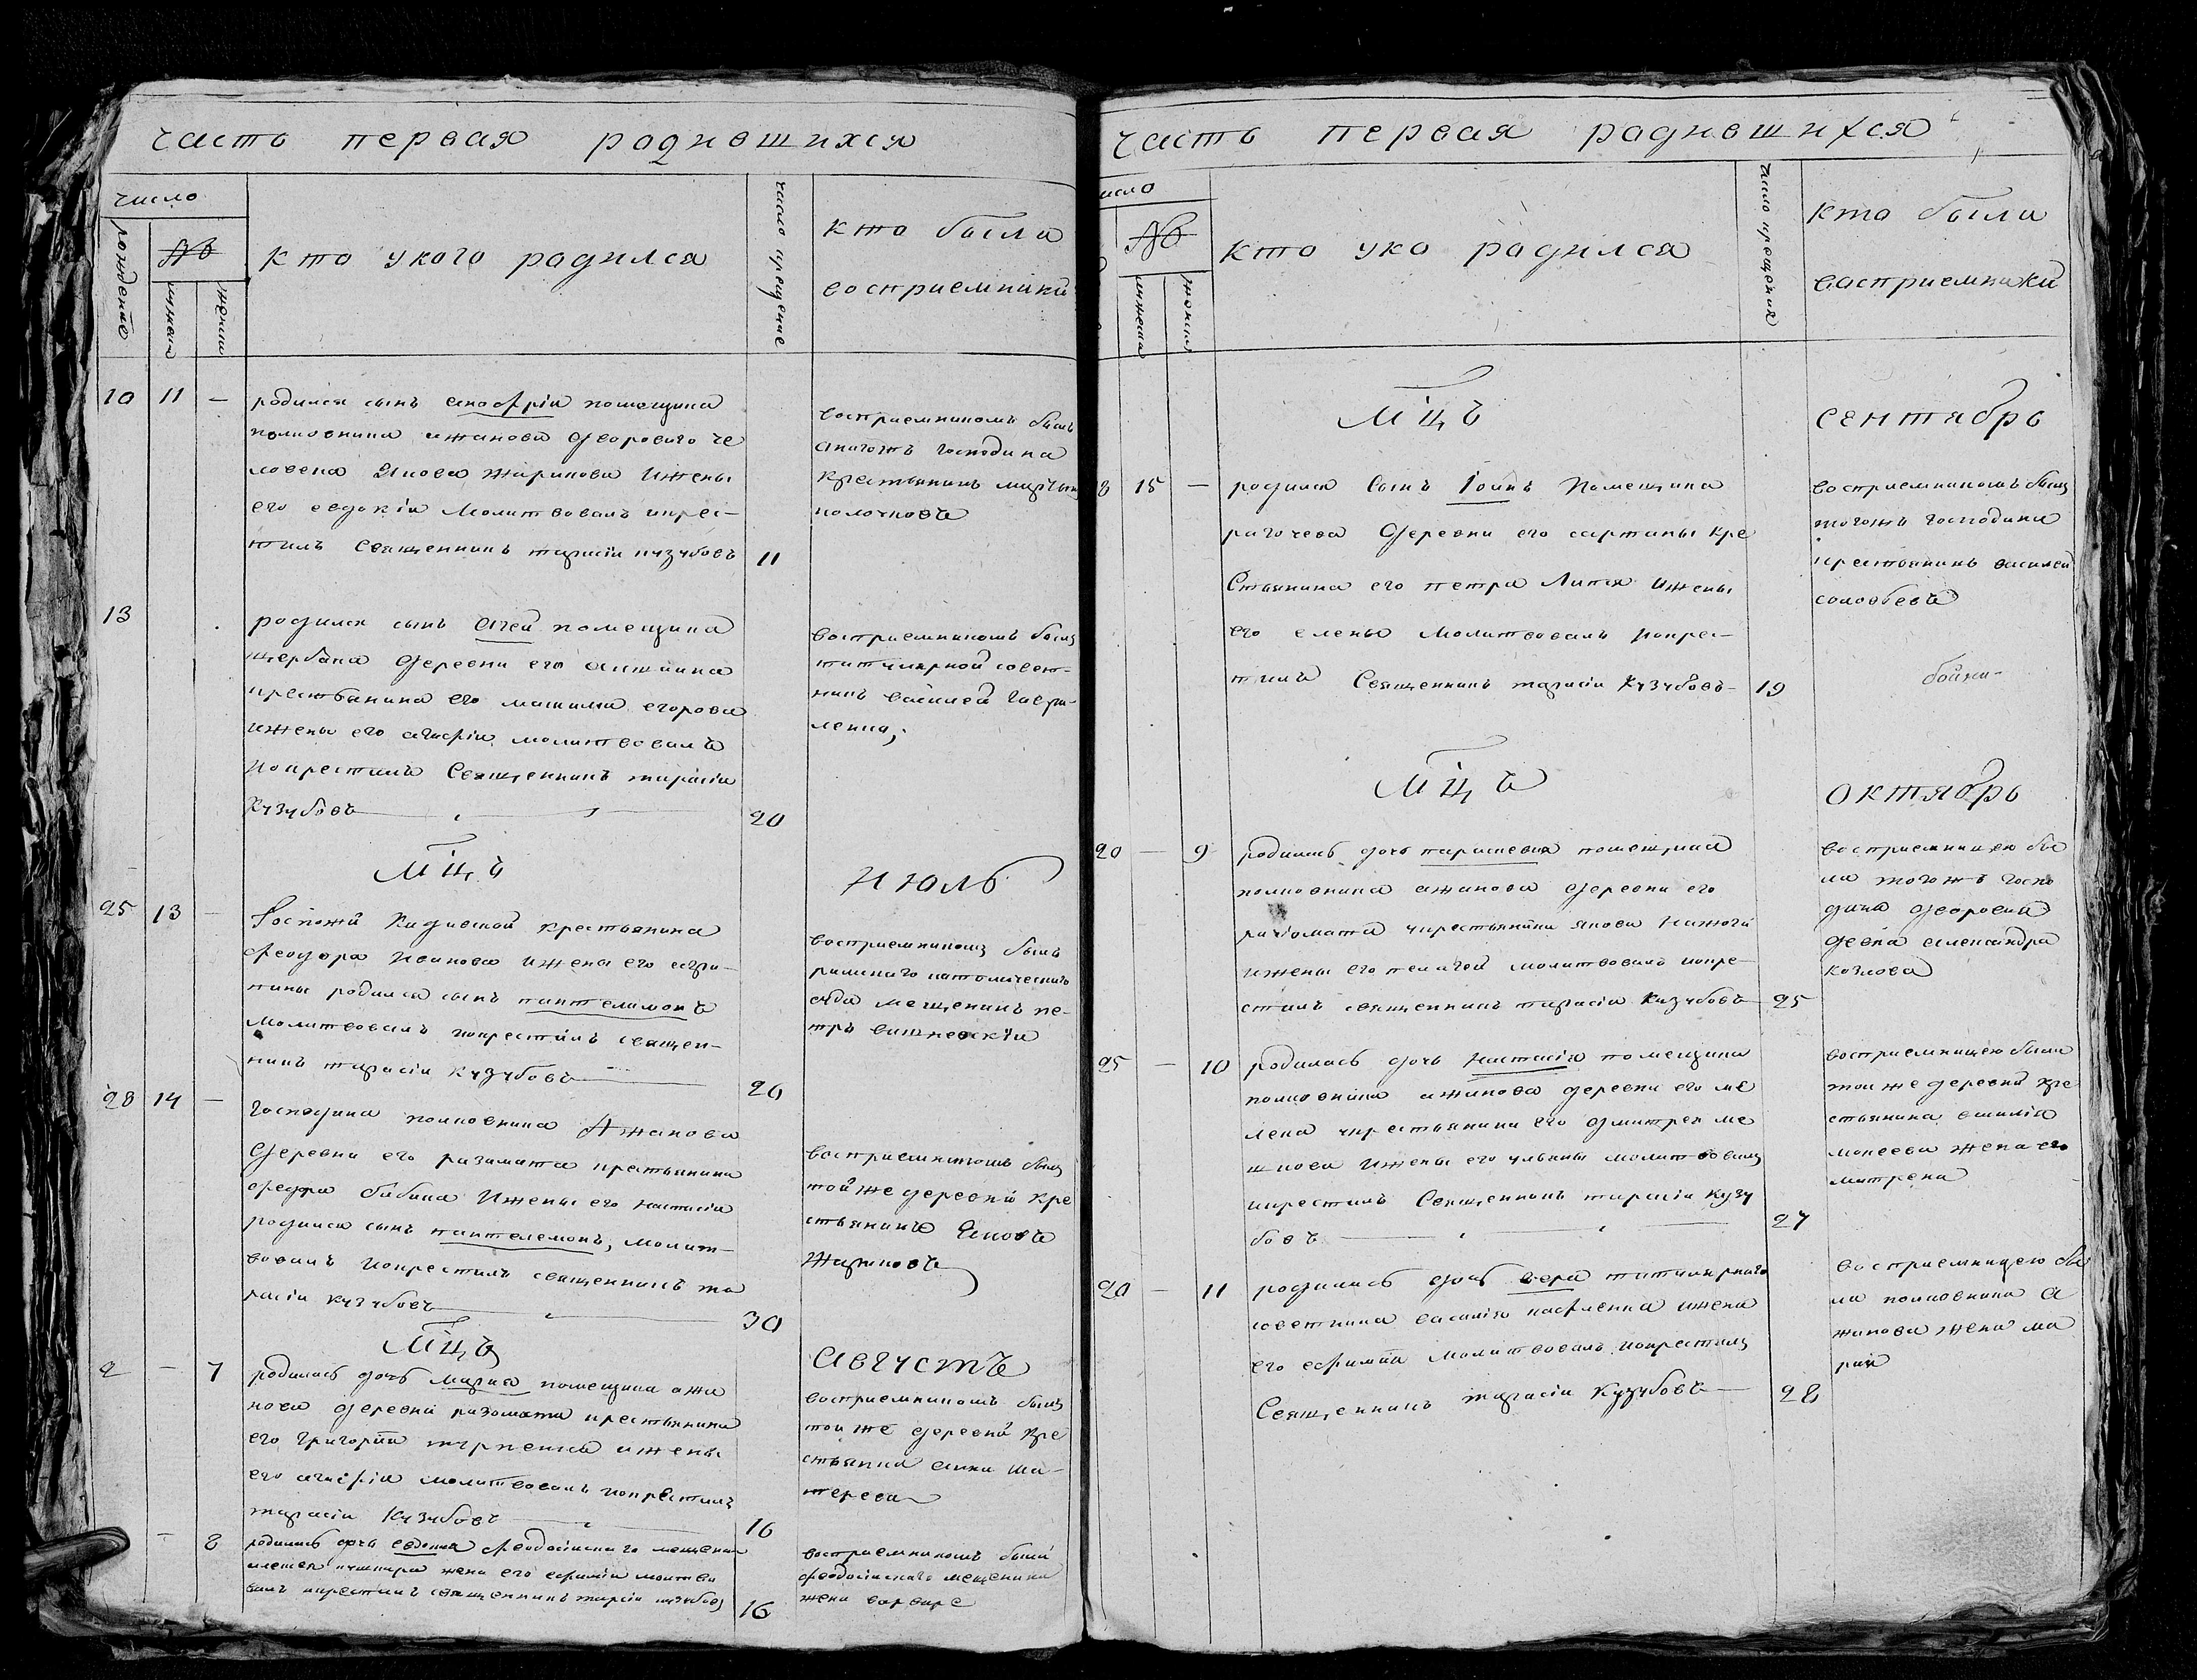 часть первая родившихся
число
рождение
№
мужеска
женска
кто укого родился
число крещение
кто были
восприемники
10 11 —
родился сынъ помещика
полковника ажанова дворового че
ловека Якова Жарикова ижены
его евдокіи Молитвовалъ икрес-
тилъ Священникъ тарасіи кузубовъ 11
восприемникомъ былъ
господина
крестьянинъ
13
родился сынъ помещика
щербана деревни его
крестьянина его егорова
ижены его агафіи молитвовалъ
Икрестилъ Священникъ тарасіи
Кузубовъ 20
восприемникомъ былъ
титулярной совет-
никъ василей гаври-
ленко,
Мцъ
Июль
25 13 —
Госпожи крестьянина
феодора Иванова ижены его
родился сынъ пантелимонъ
Молитвовалъ икрестилъ священ-
никъ тарасіи кузубовъ 26
восприемникомъ былъ
римскаго католическаго
мещенинъ пе-
тръ вишневскіи
28 14 —
господина полковника Ажанова
деревни его разамата крестьянина
федора бабика Ижены его настасіи
родился сынъ пантелемонъ, молит-
вовалъ Икрестилъ священникъ та
расіи кузубовъ 30
восприемникомъ былъ
той же деревни кре
стьянинъ Яковъ
Жариковъ
Мцъ
Августъ
2 — 7
родилась дочь мария помещика ажа
нова деревни разомата крестьянина
его григория ижены
его агафіи молитвовалъ икрестилъ
тарасіи Кузубовъ 16
восприемникомъ былъ
тои же деревни кре
стьянка
— 8
родилась дочь евдокия феодосіискаго мещенина
жены его молитво
валъ икрестилъ священникъ тарасіи кузубовъ 16
восприемникомъ были
феодосіискаго мещенина
жена варвара
часть первая родившихся
число
№
мужеска
женска
кто уко родился
число крещения
кто были
восприемники
Мцъ
сентябрь
8 15 —
родился Сынъ Іоанъ Помещика
рагочева деревни его сартаны кре
Стьянина его петра Ижены
его елены молитвовалъ икрес-
тилъ Священникъ тарасіи Кузубовъ 19
восприемникомъ былъ
тогожъ господина
крестьянинъ василей
соловьевъ
Мцъ
октябрь
20 — 9
родилась дочь параскевия помещика
полковника ажанова деревни его
разомата укрестьянина якова
ижены его пелагеи молитвовалъ икре-
стилъ священникъ тарасіи Кузубовъ 25
восприемницею бы
ла тогожъ госпо
дина дворовая
девка александра
козлова
25 — 10
родилась дочь настасія помещика
полковника ажанова деревни его ме
лека укрестьянина его дмитрея ме
шкова Ижены его ульяны молитвовалъ
икрестилъ Священникъ тарасіи кузу
бовъ 27
восприемницею была
тои же деревни кре
стьянина
мокеева жена его
матрена
20 — 11
родилась дочь вера титулярнаго
советника василія ижены
его ефимии Молитвовалъ икрестилъ
Священникъ тарасіи Кузубовъ 28
восприемницею бы
ла полковника а
жанова жена ма
рия